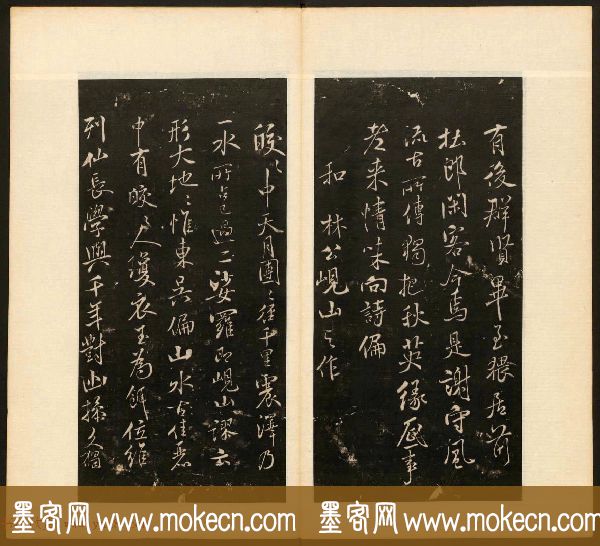 有後群賢畢至猥居前
杜郎閑客今焉是謝守風
流古所傳獨把秋英緣底事
老來情味向詩偏
和林公峴山之作
皎〻中天月團〻徑千里震澤乃
一水所占已過二娑羅即峴山謬云
形大地〻惟東吳偏山水古佳麗
中有皎〻人瓊衣玉為餌位維
列仙長學與千年對幽操久獨
墨客网 www.mokecn.com 墨客网 www.mokecn.com